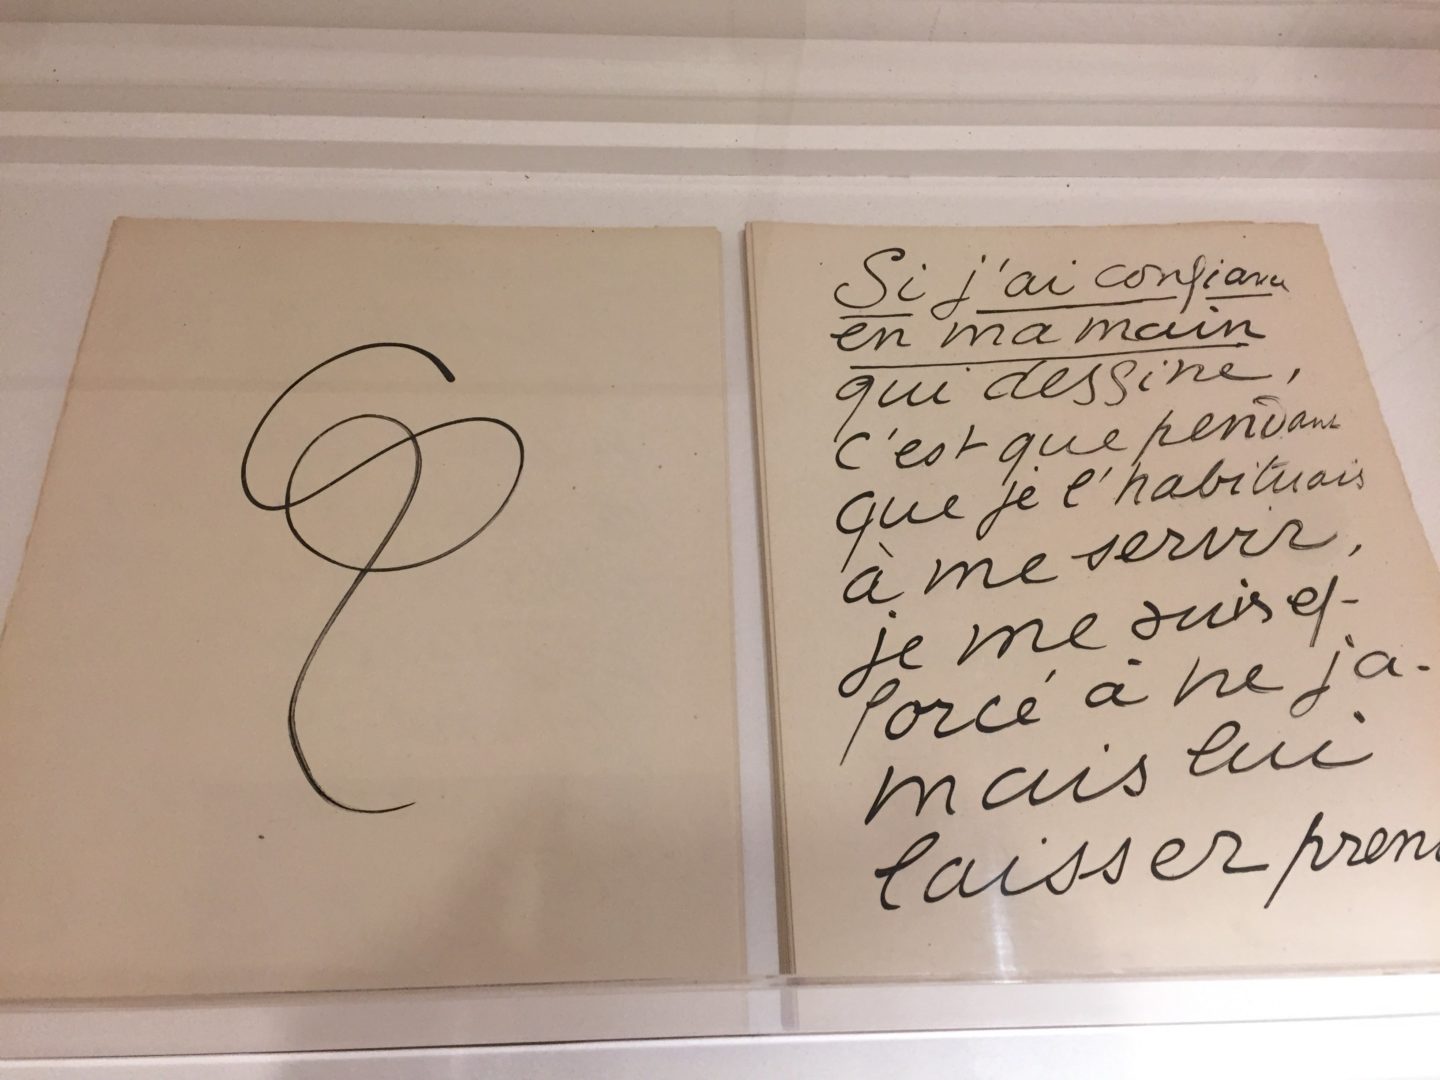 Si j'ai confiance
en ma main
qui dessine,
c'est que pendant
que je l'habituais
à me servir,
je me suis ef-
forcé à ne ja-
mais lui
laisser pren